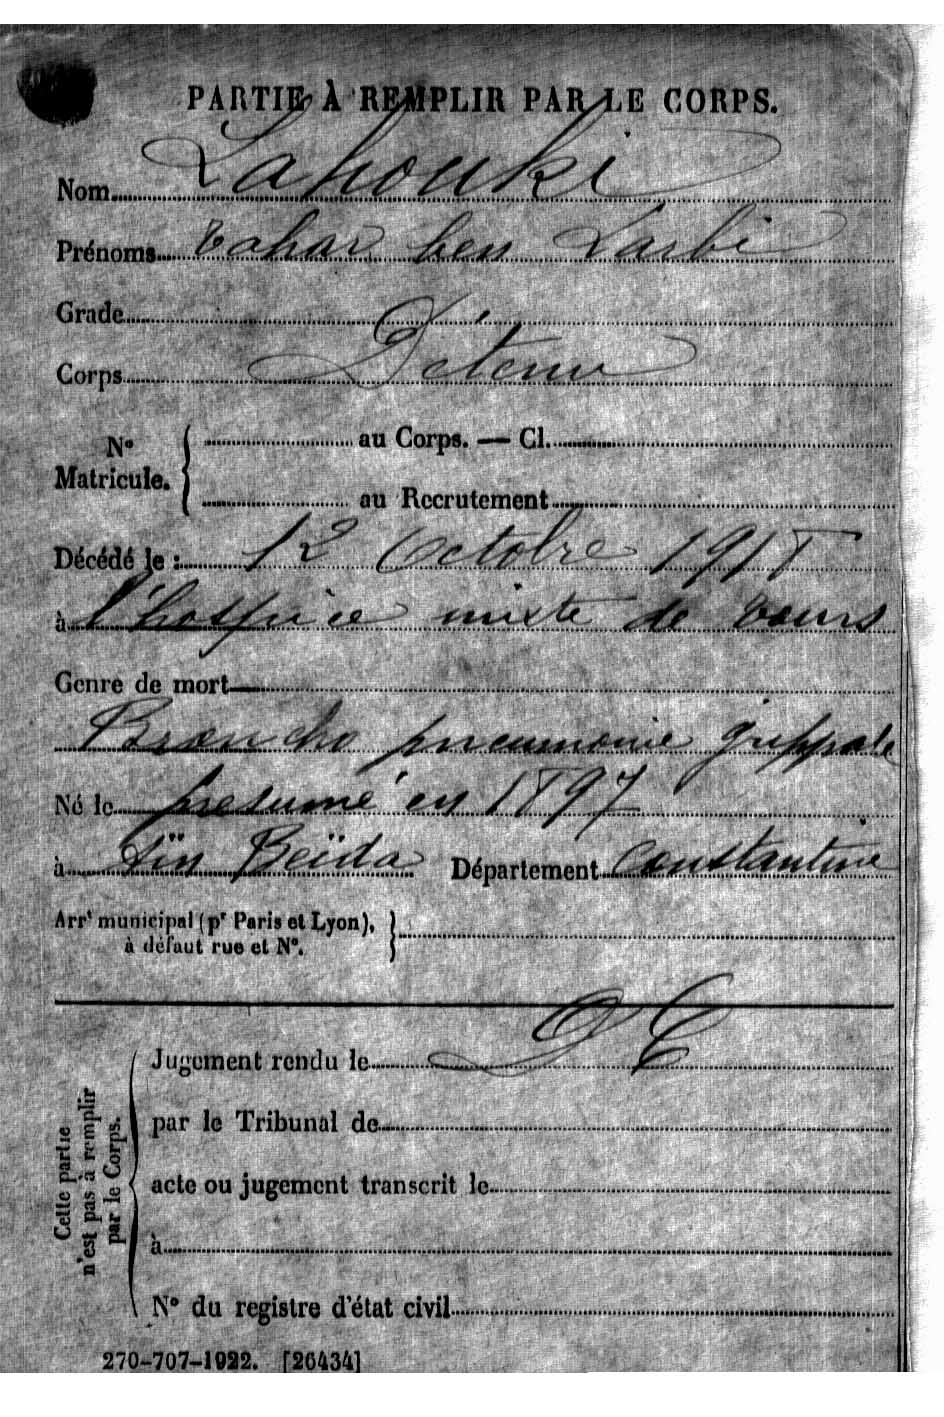 PARTIE À REMPLIR PAR LE CORPS.
Nom Lahouki
Prénoms Tahar ben Larbi
Grade
Corps Détenu
N° Matricule. { au Corps. — Cl.
au Recrutement
Décédé le : 12 Octobre 1918
à l'hospice mixte de Tours
Genre de mort
Broncho pneumonie grippale
Né le présumé en 1897
à Aïn Beïda Département Constantine
Arrt municipal (pr Paris et Lyon),
à défaut rue et N°.
Cette partie
n'est pas à remplir
par le Corps.
Jugement rendu le
par le Tribunal de
acte ou jugement transcrit le
à
N° du registre d'état civil
270-707-1922. [26434]